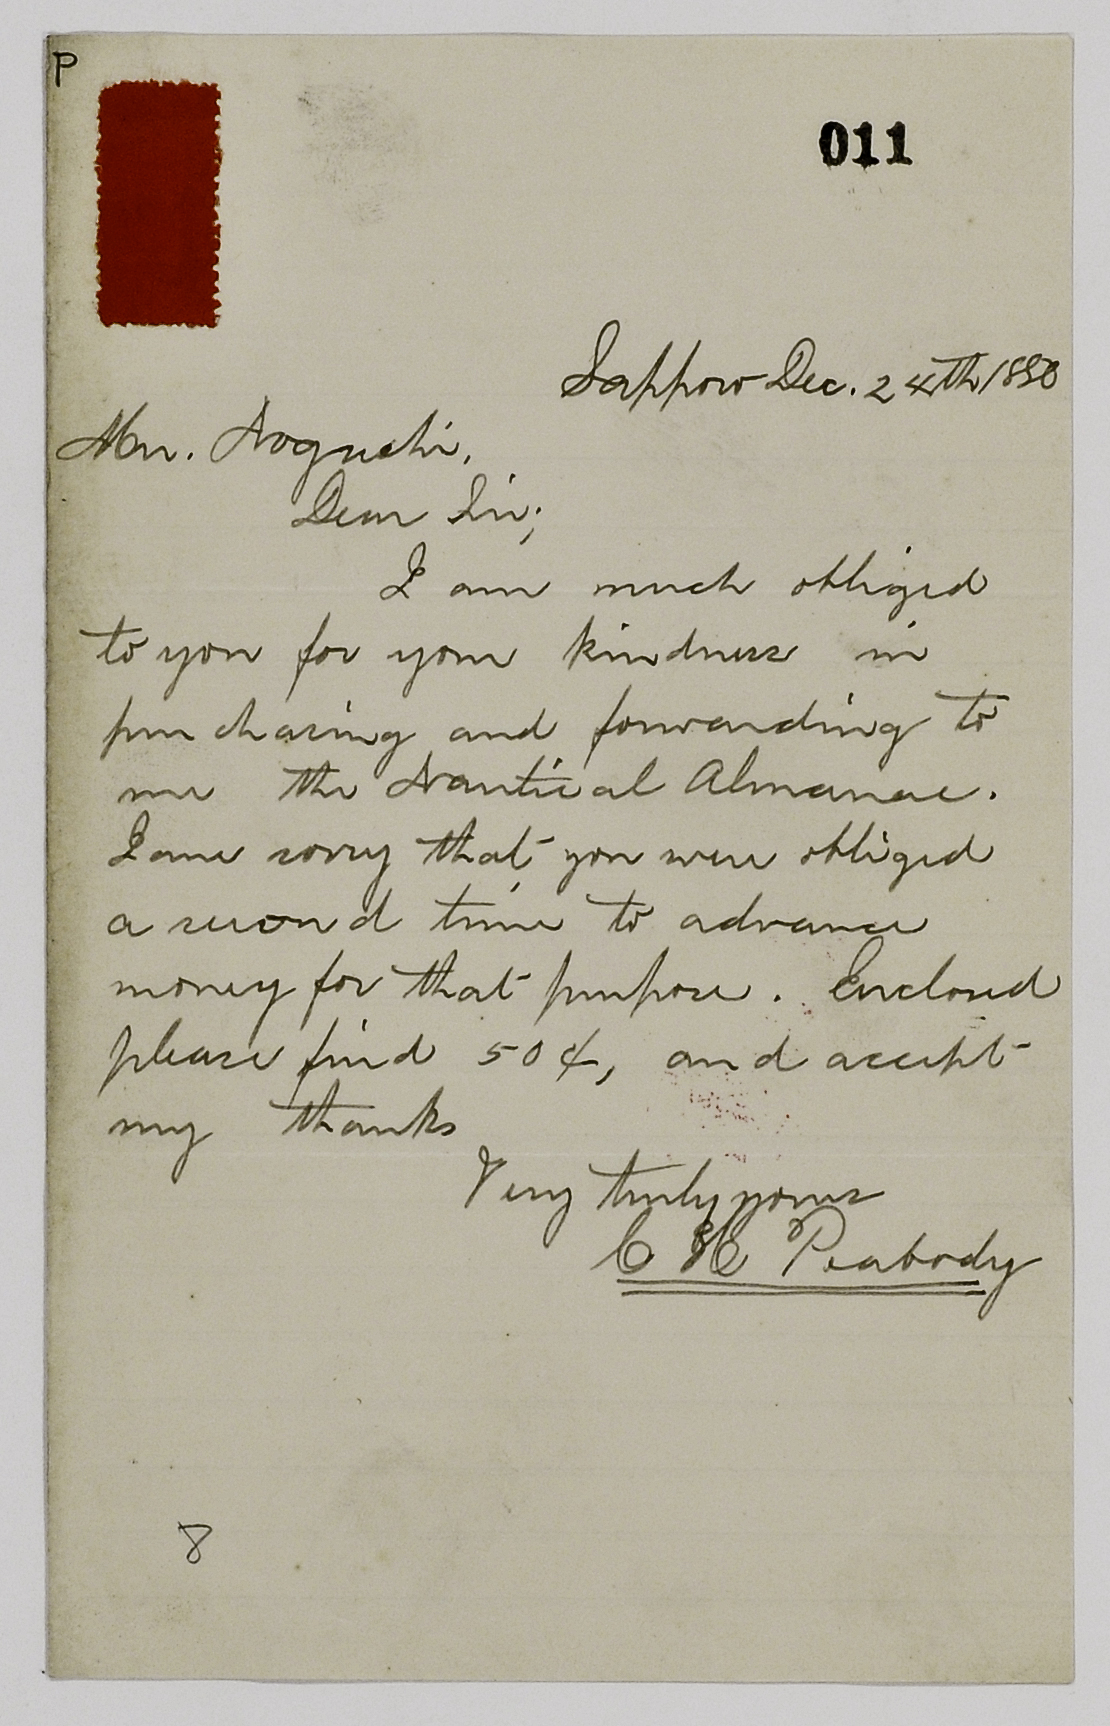 P
011
Sapporo Dec. 24th 1880
Mr. Noguchi,
Dear Sir;
I am much obliged
to you for your kindness in
purchasing and forwarding to
me the Nautical Almanac.
I am sorry that you were obliged
a second time to advance
money for that purpose. Enclosed
please find 50¢, and accept
my thanks
Very truly yours
C H Peabody
8